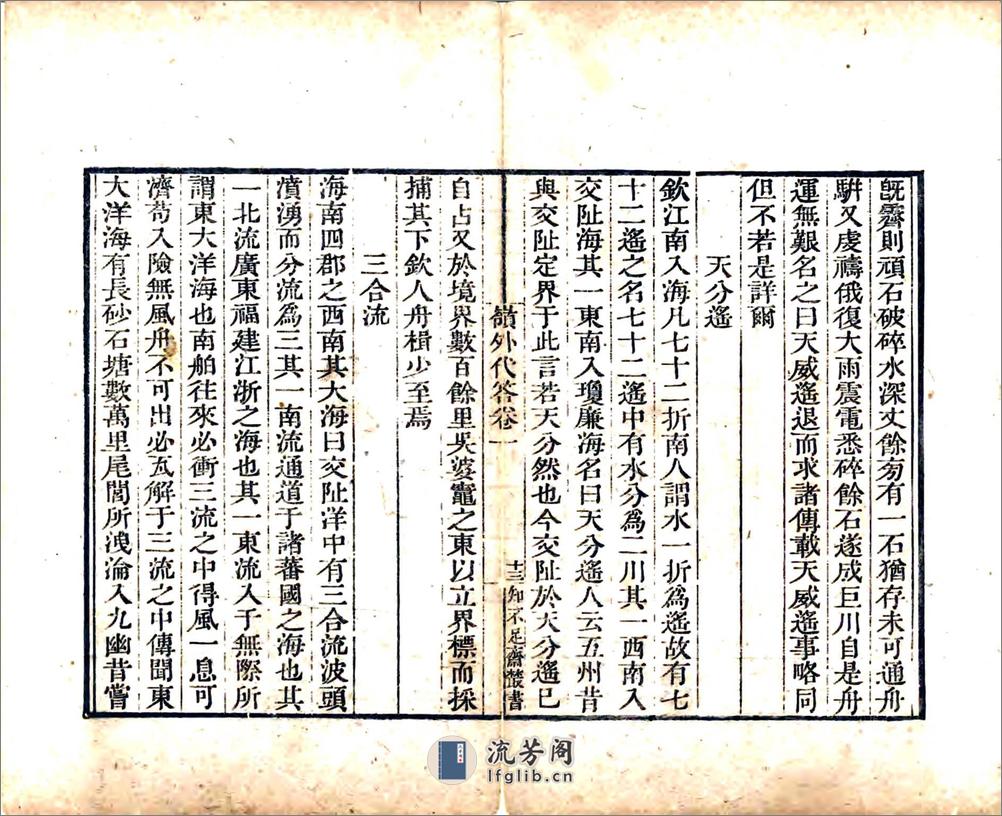 既霽則頑石破碎水深丈餘旁有一石猶存未可通舟
駢又虔禱俄復大雨震電悉碎餘石遂成巨川自是舟
運無艱名之曰天威遙退而求諸傳載天威遙事略同
但不若是詳爾
天分遙
欽江南入海凡七十二折南人謂水一折爲遙故有七
十二遙之名七十二遙中有水分爲二川其一西南入
交阯海其一東南入瓊廉海名曰天分遙人云五州昔
與交阯定界于此言若天分然也今交阯於天分遙已
嶺外代答卷一
十三
知不足齋叢書
自占又於境界數百餘里吳婆竈之東以立界標而採
捕其下欽人舟楫少至焉
三合流
海南四郡之西南其大海曰交阯洋中有三合流波頭
濆湧而分流爲三其一南流通道于諸蕃國之海也其
一北流廣東福建江浙之海也其一東流入于無際所
謂東大洋海也南舶往來必衝三流之中得風一息可
濟苟入險無風舟不可出必瓦解于三流之中傳聞東
大洋海有長砂石塘數萬里尾閭所洩淪入九幽昔嘗
流芳阁
lfglib.cn